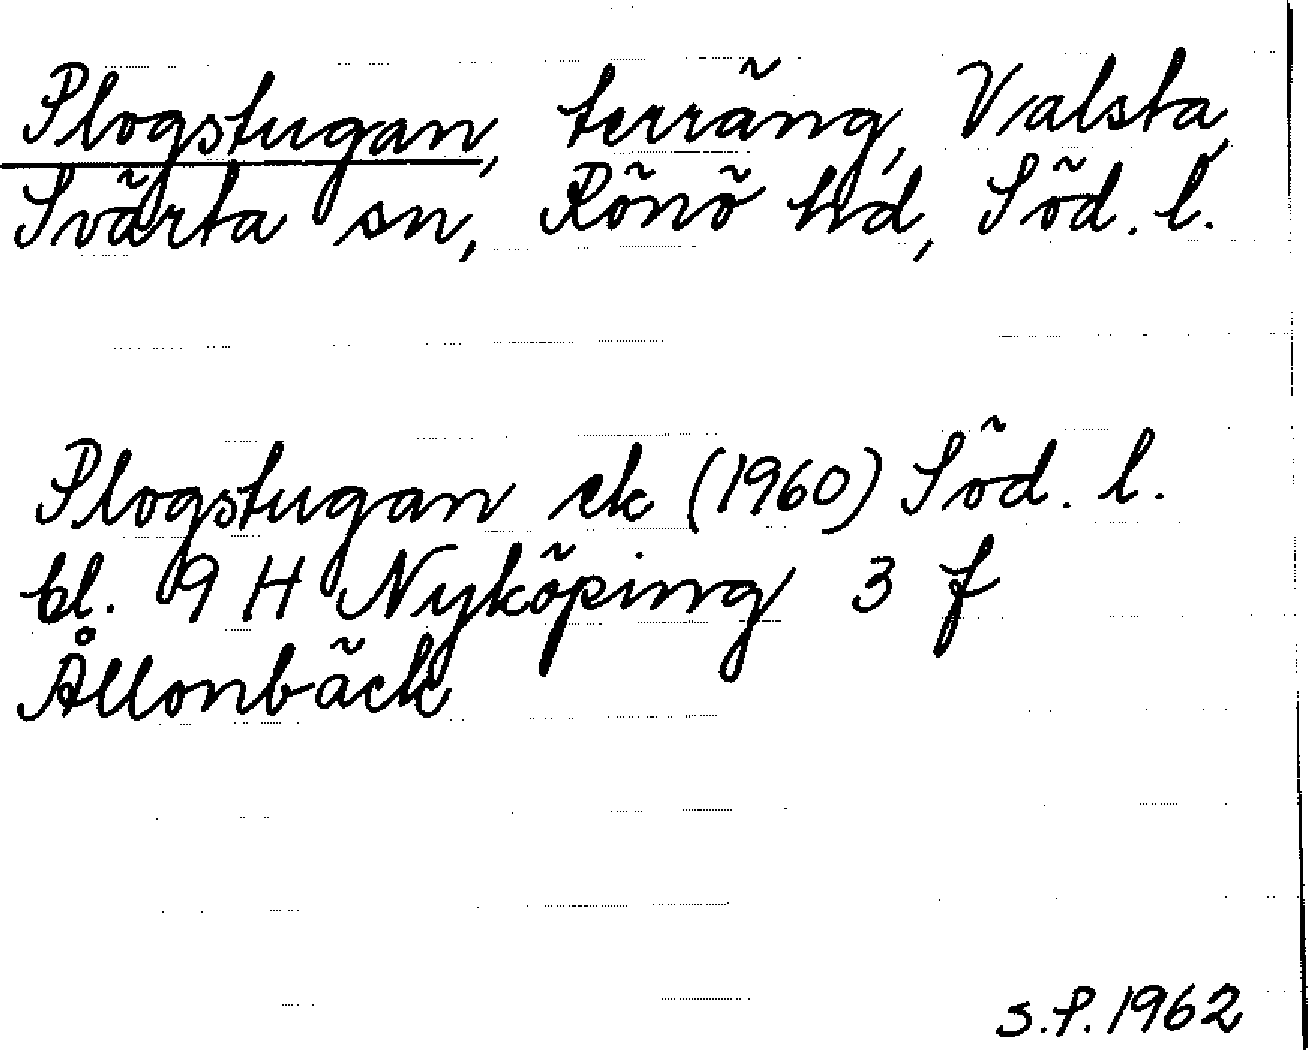 Plogstugan, terräng, Valsta,
Svärta sn, Rönö hd, Söd. l.
Plogstugan ek (1960) Söd. l.
bl. 9 H Nyköping 3 f
Ållonbäck
S.P. 1962